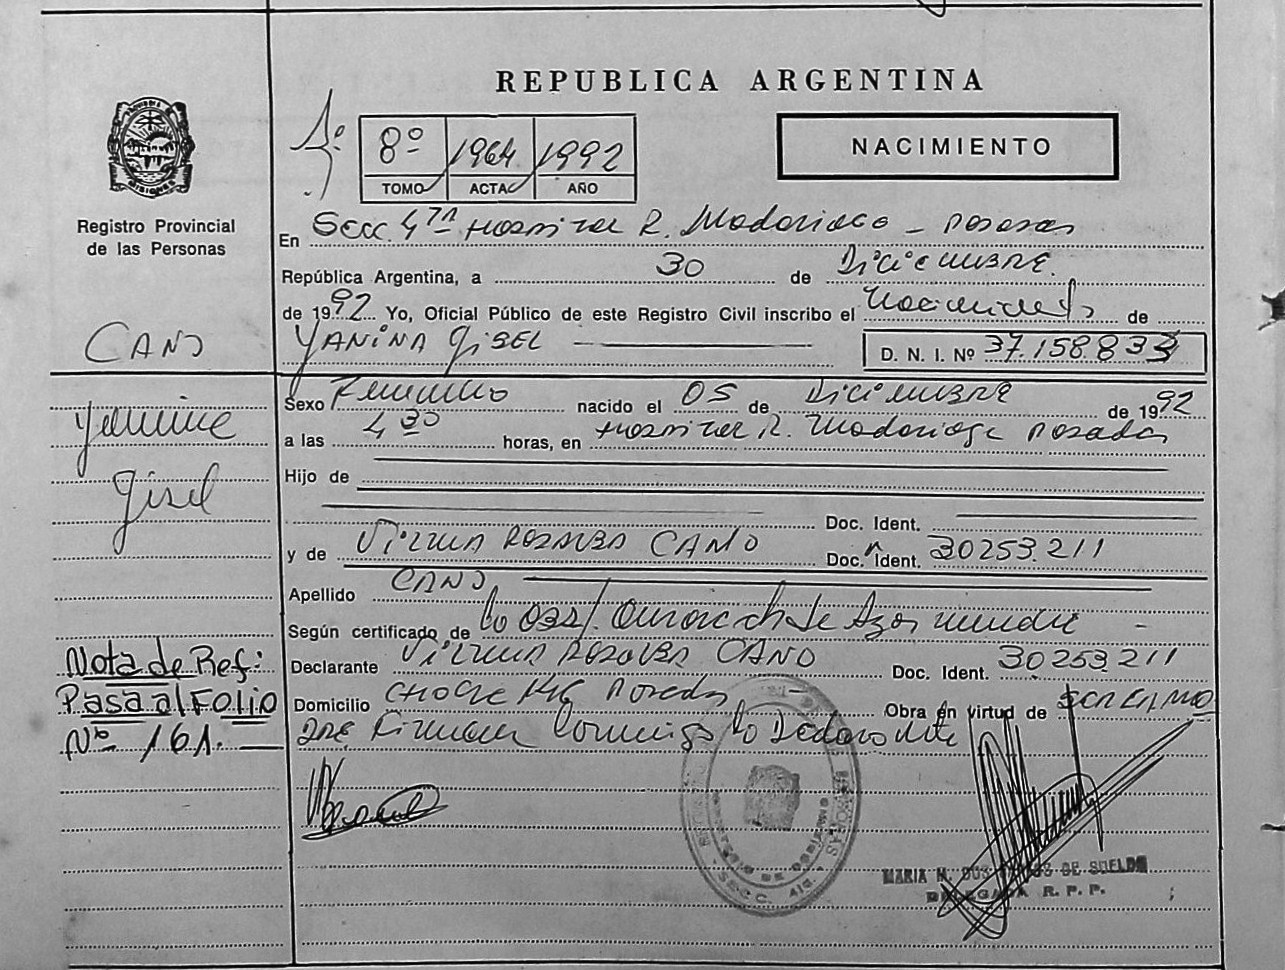 REPUBLICA ARGENTINA
1º
8º 1964 1992
TOMO ACTA AÑO
NACIMIENTO
MISIONES
Registro Provincial
de las Personas
CANO
Yanina
Gisel
Nota de Ref:
Pasa al Folio
Nº 161.
En Secc. 4ta Hospital R. Madariaga - Posadas
República Argentina, a 30 de Diciembre.
de 1992 Yo, Oficial Público de este Registro Civil inscribo el Nacimiento de
YANINA GISEL D. N. I. Nº 37.158.833
Sexo Femenino nacido el 05 de Diciembre de 1992
a las 4 30 horas, en Hospital R. Madariaga Posadas
Hijo de
Doc. Ident.
y de Vilma ROSALBA CANO Doc. Ident. 30253.211
Apellido CANO
Según certificado de
Declarante Vilma ROSALBA CANO Doc. Ident. 30253211
Domicilio Posadas Obra en virtud de ser la mad
re. Firma conmigo la Declarante
SECC. 4ta.
MARIA DE SUELDO
DELEGADA R. P. P.